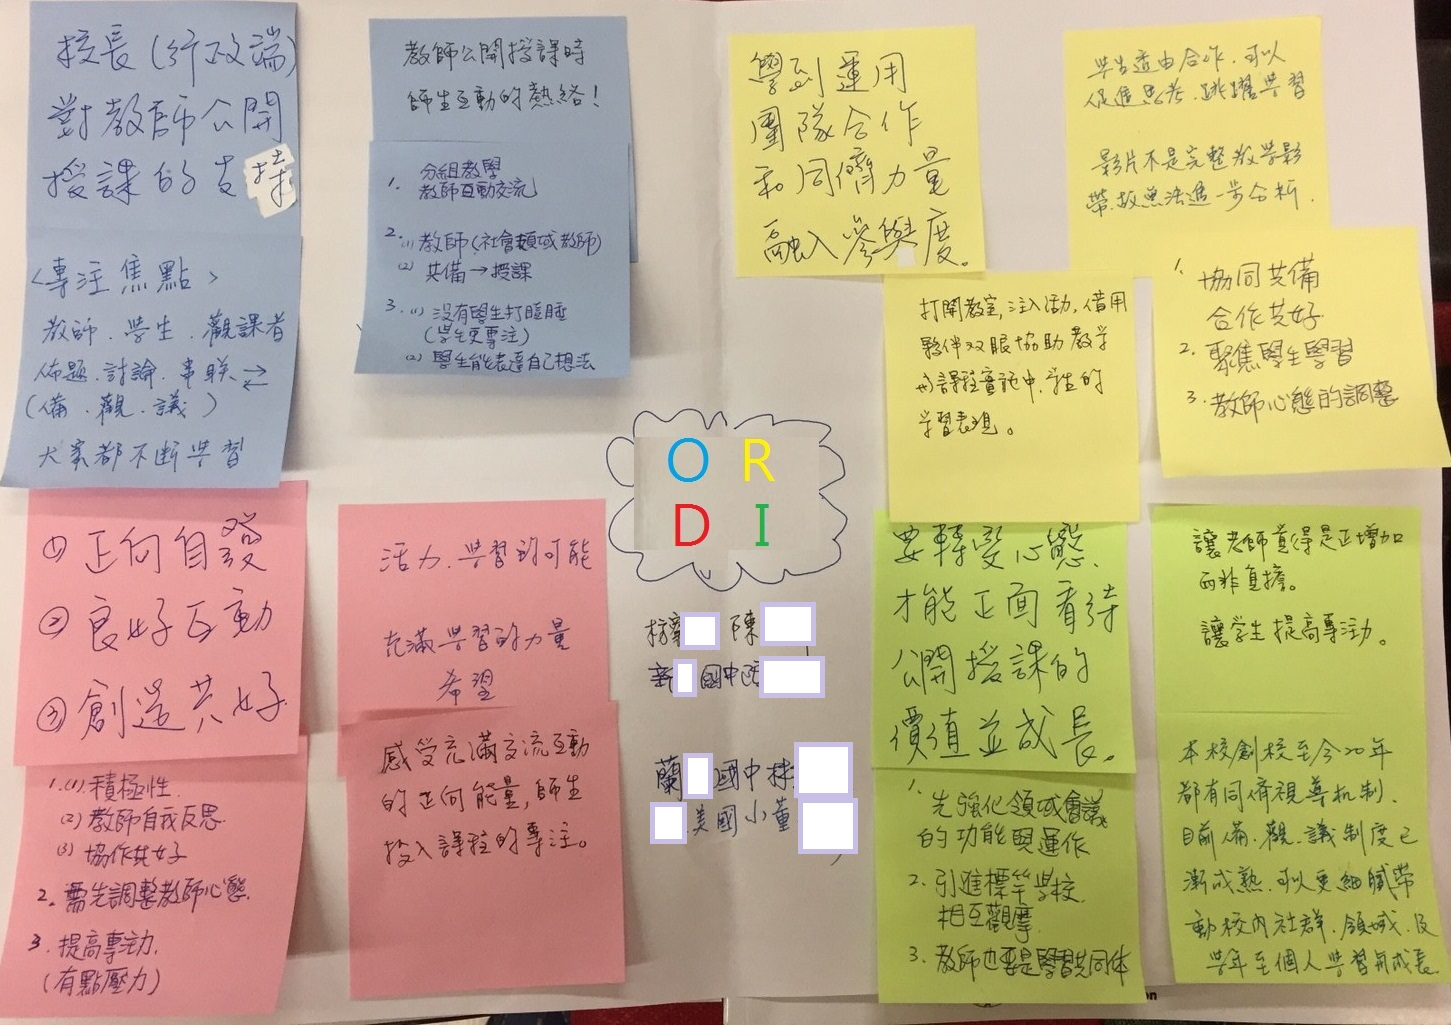 校長(行政端)
對教師公開
授課的支持
<專注焦點>
教師、學生、觀課者
佈題、討論、串聯
(備、觀、議)
大家都不斷學習
教師公開授課時
師生互動的熱絡!
1. 分組教學
教師互動交流
2. (1) 教師(社會領域教師)
(2) 共備→授課
3. (1) 沒有學生打瞌睡
(學生更專注)
(2) 學生能表達自己想法
學到運用
團隊合作
和同儕力量
融入參與度。
學生透由合作,可以
促進思考、跳躍學習
影片不是完整教學影
帶,故無法進一步分析.
打開教室,注入活力,借用
夥伴双眼協助教學
課程實施中,學生的
學習表現。
1. 協同共備
合作共好
2. 聚焦學生學習
3. 教師心態的調整
O R
D I
① 正向自發
② 良好互動
③ 創造共好
1. (1) 積極性
(2) 教師自我反思
(3) 協作共好
2. 需先調整教師心態
3. 提高專注力
(有點壓力)
活力、學習的可能
充滿學習的力量
希望
感受充滿交流互動
的正向能量,師生
投入課程的專注。
陳
國中
蘭 國中林
美國小董
要轉變心態,
才能正面看待
公開授課的
價值並成長。
1. 先強化領域會議
的功能與運作
2. 引進標竿學校,
相互觀摩
3. 教師也要是學習共同体
讓老師覺得是正增加
而非負擔。
讓學生提高專注力。
本校創校至今20年
都有同儕視導機制,
目前備、觀、議制度已
漸成熟,可以更細膩帶
動校內社群、領域、及
學年至個人學習與成長